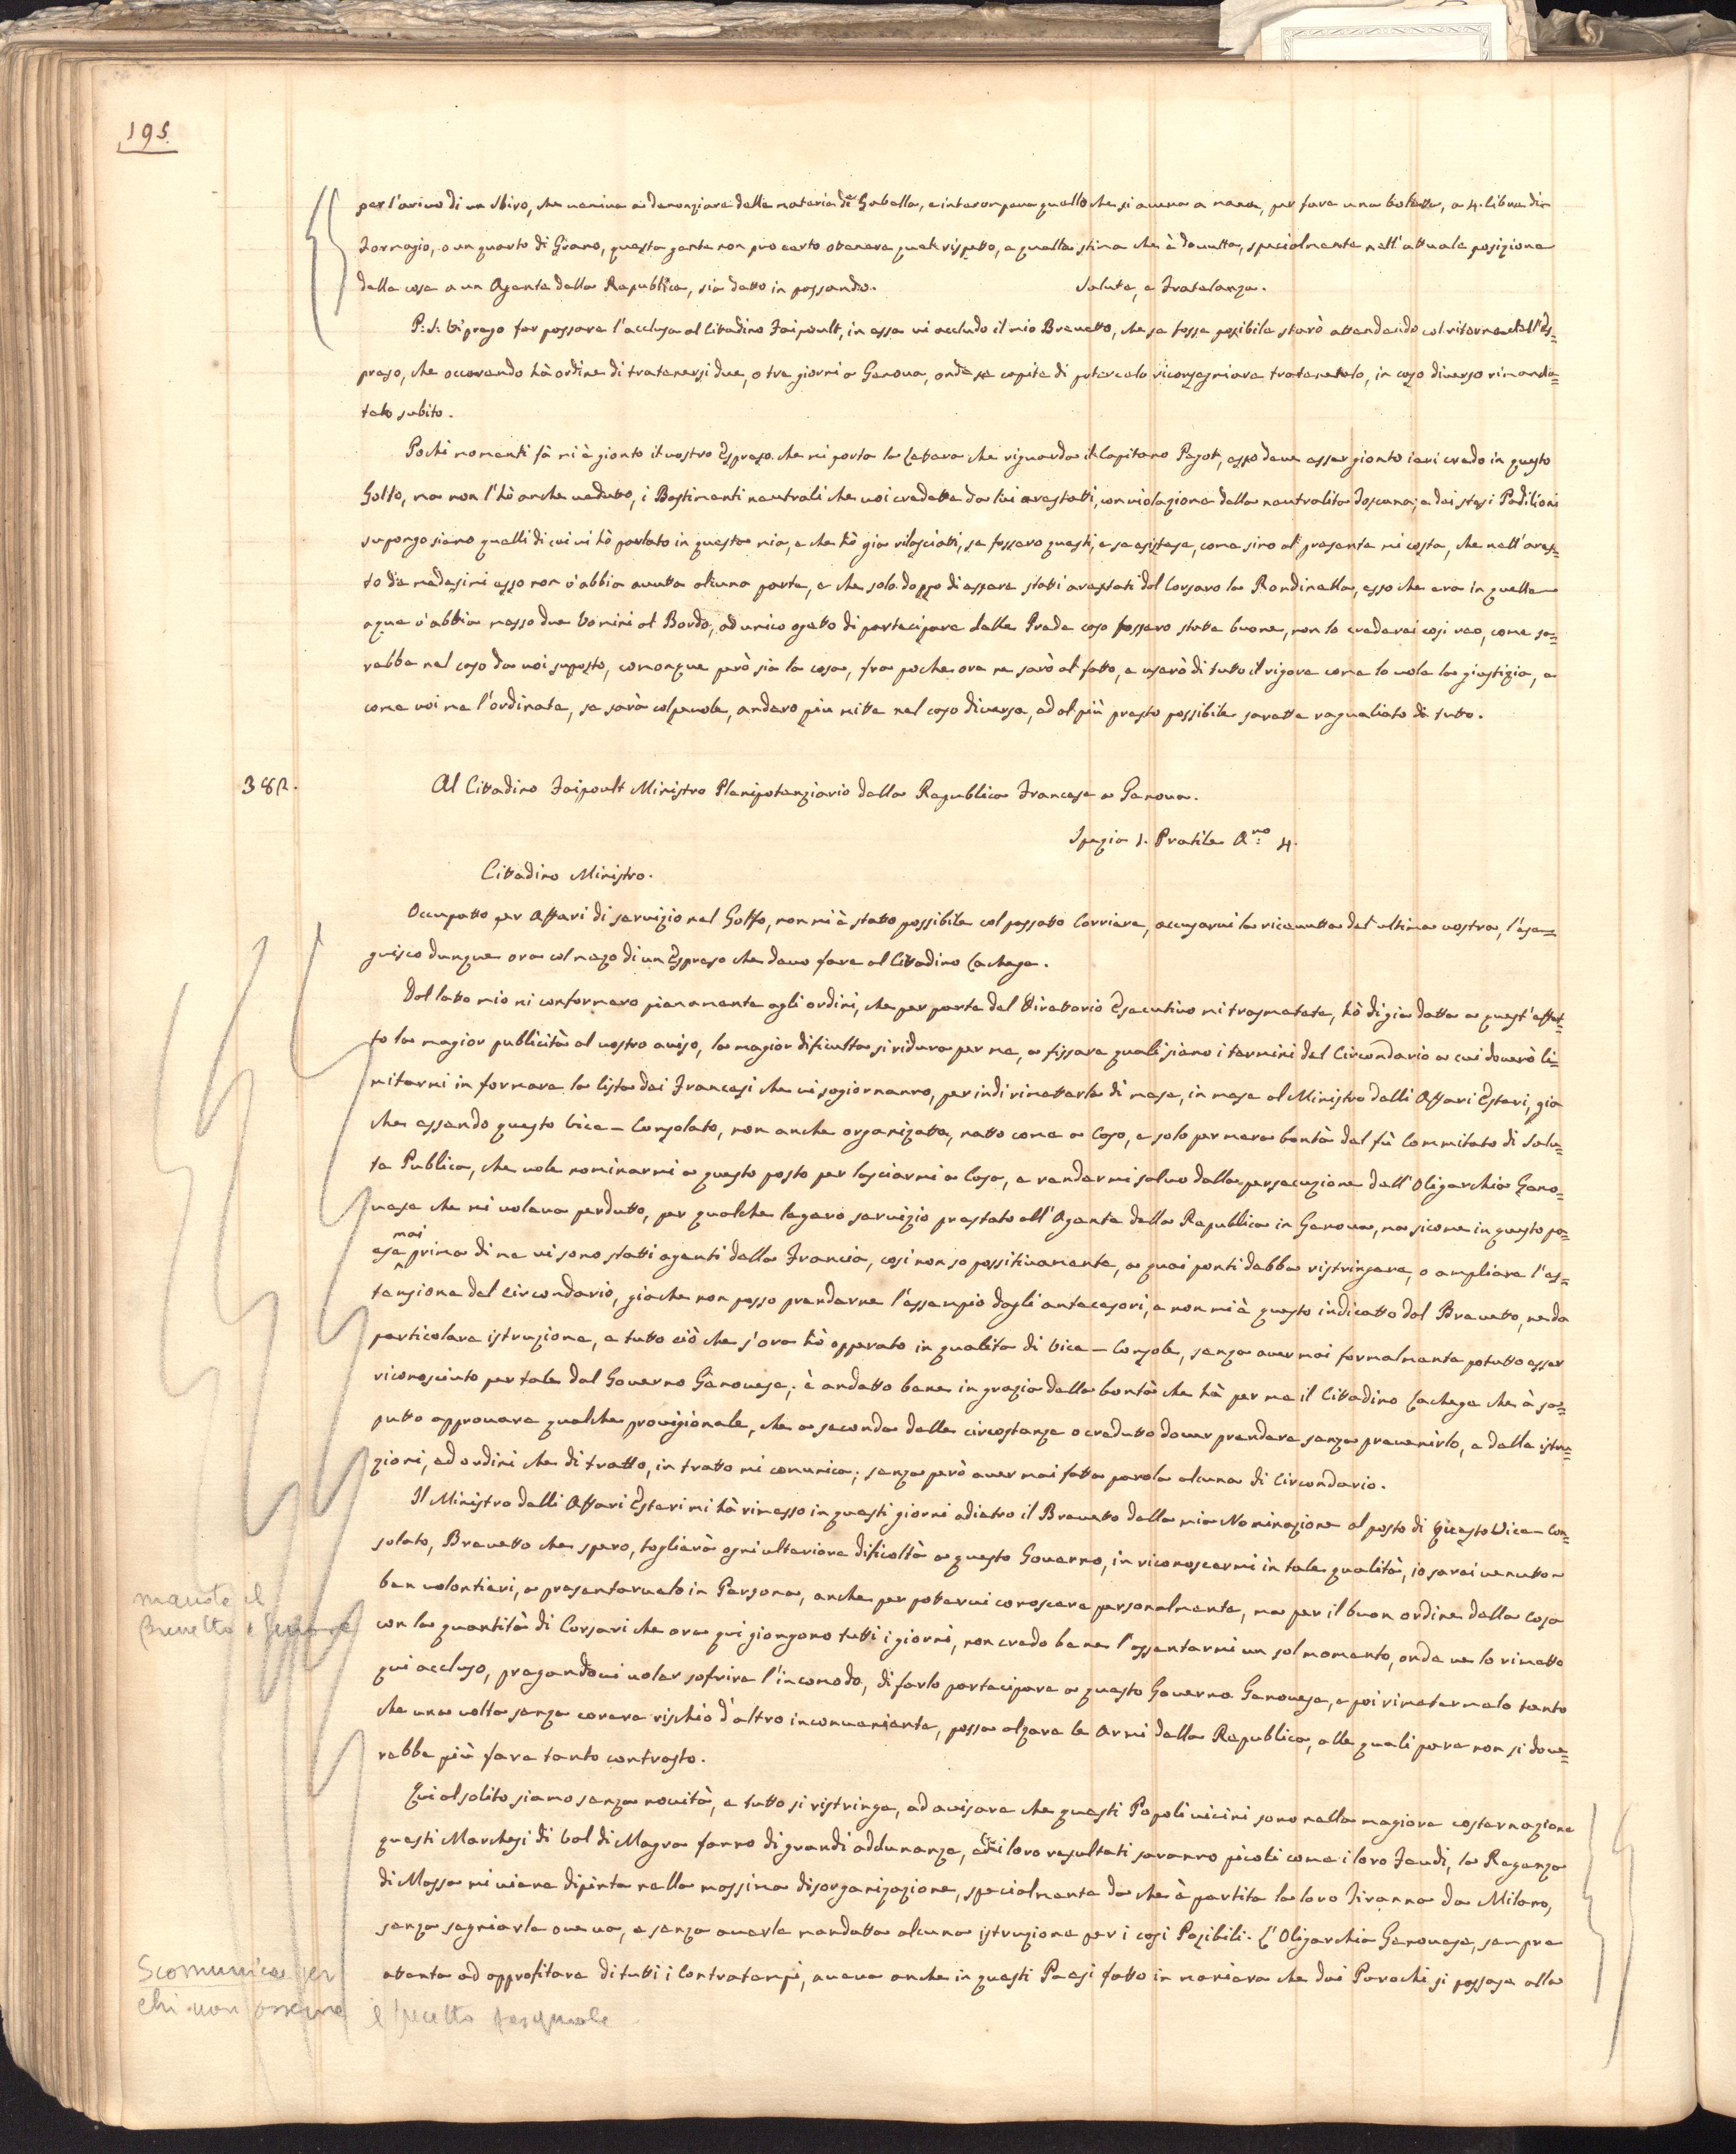 195.
per l'arivo di un sbiro, che veniva a denonziare delle materie di Gabella, e interompeva quello che si aveva a mano, per fare una boletta, a 4. libre di
Formagio, o un quarto di Grano, questa gente non può certo otenere quel rispetto, e quella stima che è dovutta, specialmente nell'attuale posizione
delle cose a un Agente della Republica, sia detto in passando. Salute, e Fratelanza.
P: S: Vi prego far passare l'acclusa al Cittadino Faipoult, in essa vi accludo il mio Brevetto, che se fosse posibile starò attendendo col ritorno dell'Es=
preso, che occorendo hà ordine di tratenersi due, o tre giorni a Genova, onde se capite di potercelo riconsegniare tratenetelo, in caso diverso rimanda=
telo subito.
Pochi momenti fà mi è gionto il vostro Espreso che mi porta la Lettera che riguarda il Capitano Pagot, esso deve esser gionto ieri credo in questo
Golfo, ma non l'hò anche vedutto, i Bastimenti neutrali che voi credette da lui arestatti, con violazione della neutralità Toscana, e dei stesi Padilioni
supongo siano quelli di cui vi hò parlato in questa mia, e che hò già rilasciatti, se fossero questi, e se esistese, come sino al presente mi costa, che nell'ares=
to de medesimi esso non v'abbia avutta alcuna parte, e che solo doppo di essere statti arestati dal Corsaro la Rondinella, esso che era in quelle
aque v'abbia messo due Uomini al Bordo, ad unico ogetto di partecipare delle Prede caso fossero state buone, non lo crederei così reo, come sa=
rebbe nel caso da voi suposto, comonque però sia la cosa, fra poche ore ne sarò al fatto, e userò di tutto il rigore come lo vole la giustizia, e
come voi me l'ordinate, se sarà colpevole, anderò più mitte nel caso diverso, ed al più presto possibile sarette ragualiato di tutto.
382.
Al Cittadino Faipoult Ministro Plenipotenziario della Republica Francese a Genova.
Spezia 1. Pratile A.no 4.
Cittadino Ministro.
Occupatto per Affari di servizio nel Golfo, non mi è statto possibile col passatto Corriere, accusarvi la ricevutta del ultima vostra, l'ese=
guisco dunque ora col mezo di un Espreso che devo fare al Cittadino Lachege.
Dal latto mio mi conformero pienamente agli ordini, che per parte del Direttorio Esecutivo mi trasmetete, hò di già datta a quest'effet=
to la magior publicità al vostro aviso, la magior dificulta si riduce per me, a fissare quali siano i termini del Circondario a cui doverò li=
mitarmi in formare la lista dei Francesi che vi sogiornanno, per indi rimetterla di mese, in mese al Ministro delli Affari Esteri, gia
che essendo questo Vice-Consolato, non anche organizatto, natto come a Caso, e solo per mera bontà del fù Commitato di Salu=
te Publica, che vole nominarmi a questo posto per lasciarmi a Casa, e rendermi salvo dalla persecuzione dell'Oligarchia Geno=
vese che mi voleva perdutto, per qualche legero servizio prestato all'Agente della Republica in Genova, ma sicome in questo pa=
ese mai prima di me vi sono statti agenti della Francia, così non so possitivamente, a quai ponti debba ristringere, o ampliare l'es=
tensione del circondario, giache non posso prenderne l'essempio dagli antecesori, e non mi è questo indicatto dal Brevetto, ne da
particolare istruzione, e tutto ciò che s'ora hò opperato in qualità di Vice-Console, senza aver mai formalmente potutto esser
riconosciuto per tale dal Governo Genovese, è andatto bene in grazia della bontà che hà per me il Cittadino Lachege che à sa=
putto approvare qualche provisionale, che a seconda delle circostanze o credutto dover prendere senza prevenirlo, e dalle istru=
zioni, ed ordini che di tratto, in tratto mi comunica, senza però aver mai fatta parola alcuna di Circondario.
Il Ministro delli Affari Esteri mi hà rimesso in questi giorni adietro il Brevetto della mia Nominazione al posto di questo Vice-Con=
solato, Brevetto che spero, toglierà ogni ulteriore dificoltà a questo Governo, in riconoscermi in tale qualità, io sarei venutto
ben volontieri, a presentarvelo in Persona, anche per pottervi conoscere personalmente, ma per il buon ordine della cosa
con la quantità di Corsari che ora qui giongono tutti i giorni, non credo bene l'assentarmi un sol momento, onde ve lo rimetto
qui accluso, pregandovi voler sofrire l'incomodo, di farlo partecipare a questo Governo Genovese, e poi rimetermelo tanto
che una volta senza corere rischio d'altro inconveniente, possa alzare le Armi della Republica, alle quali pare non si dove=
rebbe più fare tanto contrasto.
Qui al solito siamo senza novità, e tutto si ristringe, ad avisare che questi Popoli vicini sono nella magiore costernazione
questi Marchesi di Val di Magra fanno di grandi addunanze, ed i loro resultati saranno picoli come i loro Feudi, la Regenza
di Massa mi viene dipinta nella massima disorganizazione, specialmente da che è partita la loro Tiranna da Milano,
senza segniarle ove va, e senza averle mandatta alcuna istruzione per i casi Posibili. L'Oligarchia Genovese, sempre
attenta ad approfitare di tutti i Contratempi, aveva anche in questi Paesi fatto in maniera che dai Parochi si passase alla
mande il
Brevetto a Genova
Scomunica per
chi non osserva il precetto pasquale